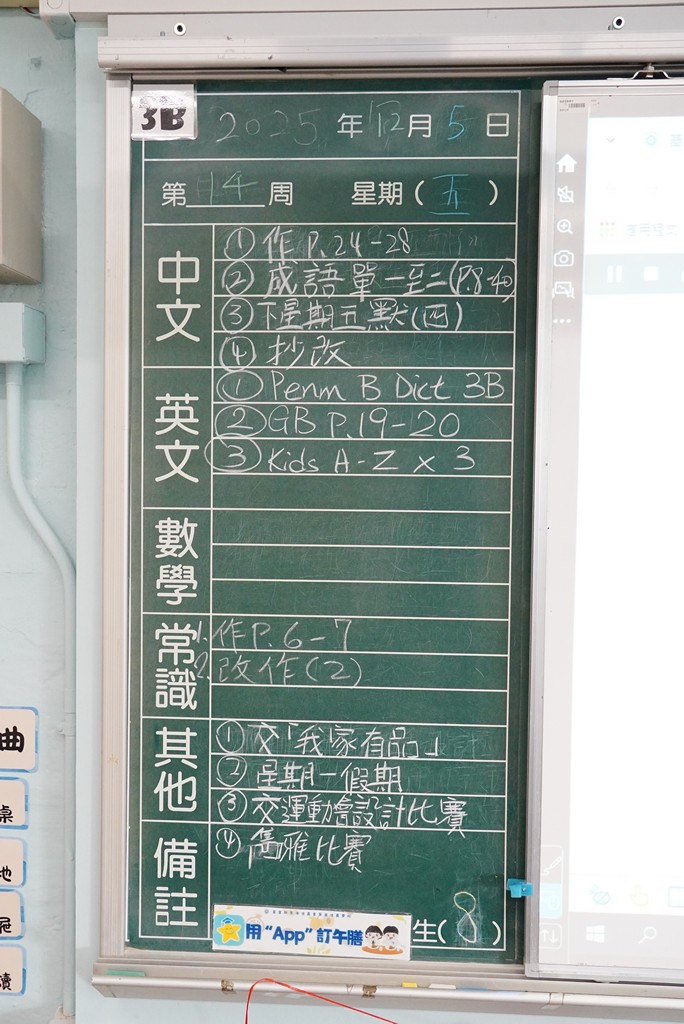 3B
2025年12月5日
第14周 星期(五)
中文
①作P.24-28
②成語單一至二(P.8-40)
③下星期五默(四)
④抄改
英文
①Penm B Dict 3B
②GB P.19-20
③Kids A-Z x 3
數學
常識
1.作P.6-7
2.改作(2)
其他
①交「我家有品」
②星期一假期
③交運動會設計比賽
備註
④ 比賽
用“App”訂午膳
生(8)
曲
桌
地